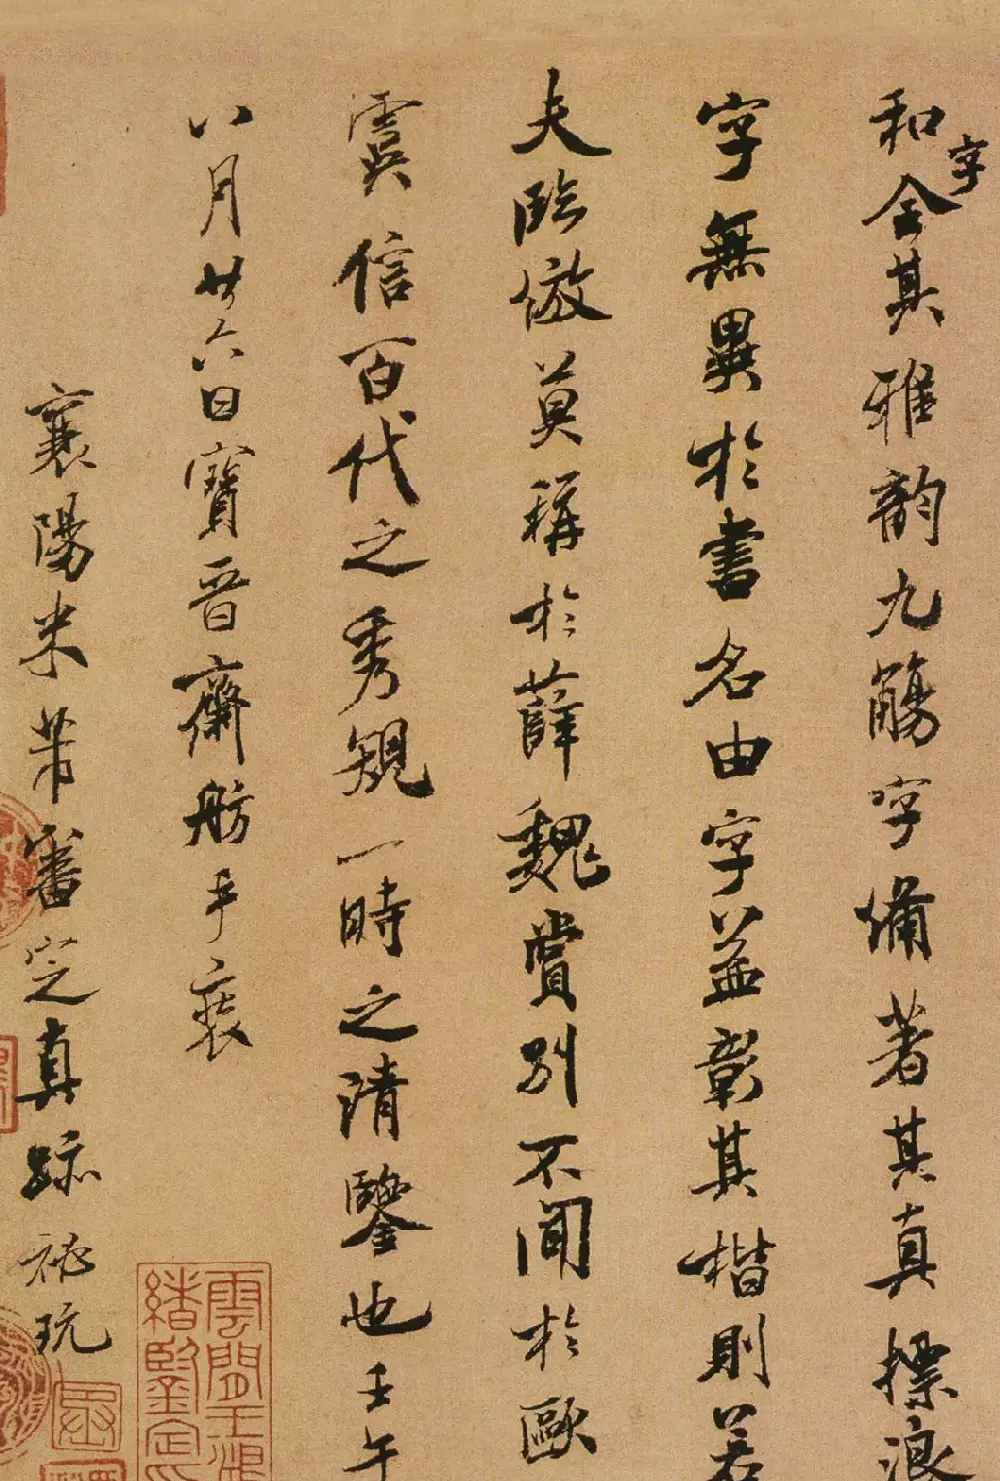 和全字其雅韵九觴字備著其真標浪
字無異於書名由字益彰其楷則若
夫臨倣莫稱於薛魏賞別不聞於歐
虞信百代之秀規一時之清鑒也壬午
八月廿六日寶晉齋舫手裝
襄陽米芾審定真跡秘玩
雲間王鴻
緒鑒定